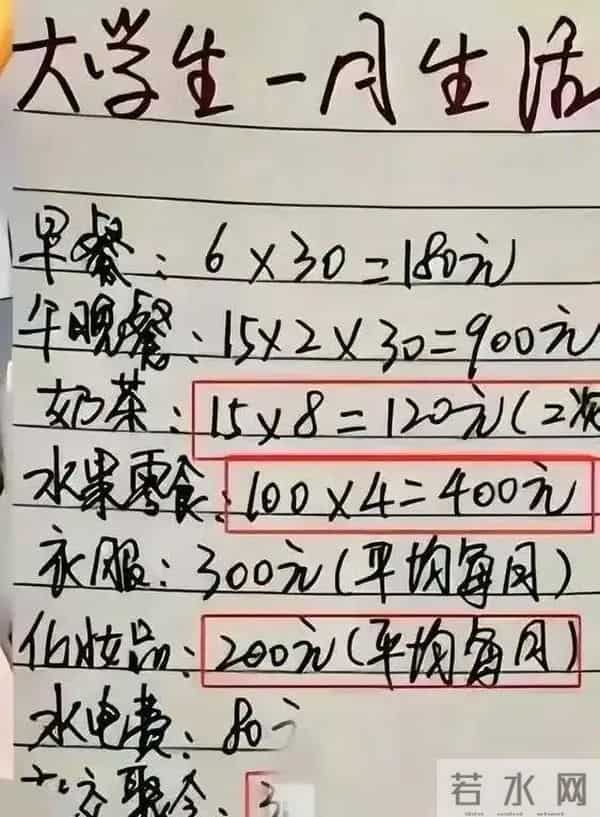 大学生一月生活
早餐：6×30=180元
午晚餐：15×2×30=900元
奶茶：15×8=120元(二次
水果零食：100×4=400元
衣服：300元(平均每月)
化妆品：200元(平均每月)
水电费：80
交聚会：3
若水网